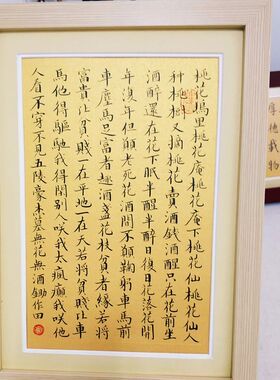 桃花塢里桃花庵桃花庵下桃花仙桃花仙人
种桃樹又摘桃花賣酒錢酒醒只在花前坐
酒醉還在花下眠半醒半醉日復日花落花開
年復年但願老死花酒間不願鞠躬車馬前
車塵馬足富者趣酒盞花枝貧者緣若將
富貴比貧賤一在平地一在天若將貧賤比車
馬他得驅馳我得閒別人笑我太瘋癲我笑他
人看不穿不見五陵豪杰墓無花無酒鋤作田
厚德載物